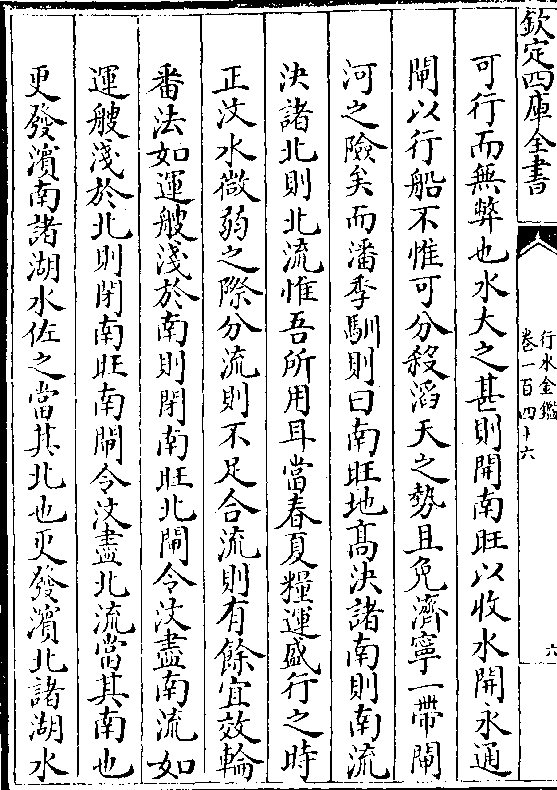 欽定四庫全書
行水金鑑
卷一百四十六
六
可行而無弊也水大之甚則開南旺以收水開永通
閘以行船不惟可分殺滔天之勢且免濟寧一帶閘
河之險矣而潘季馴則曰南旺地高決諸南則南流
決諸北則北流惟吾所用耳當春夏糧運盛行之時
正汶水微弱之際分流則不足合流則有餘宜效輪
番法如運艘淺於南則閉南旺北閘令汶盡南流如
運艘淺於北則閉南旺南閘令汶盡北流當其南也
更發濱南諸湖水佐之當其北也更發濱北諸湖水